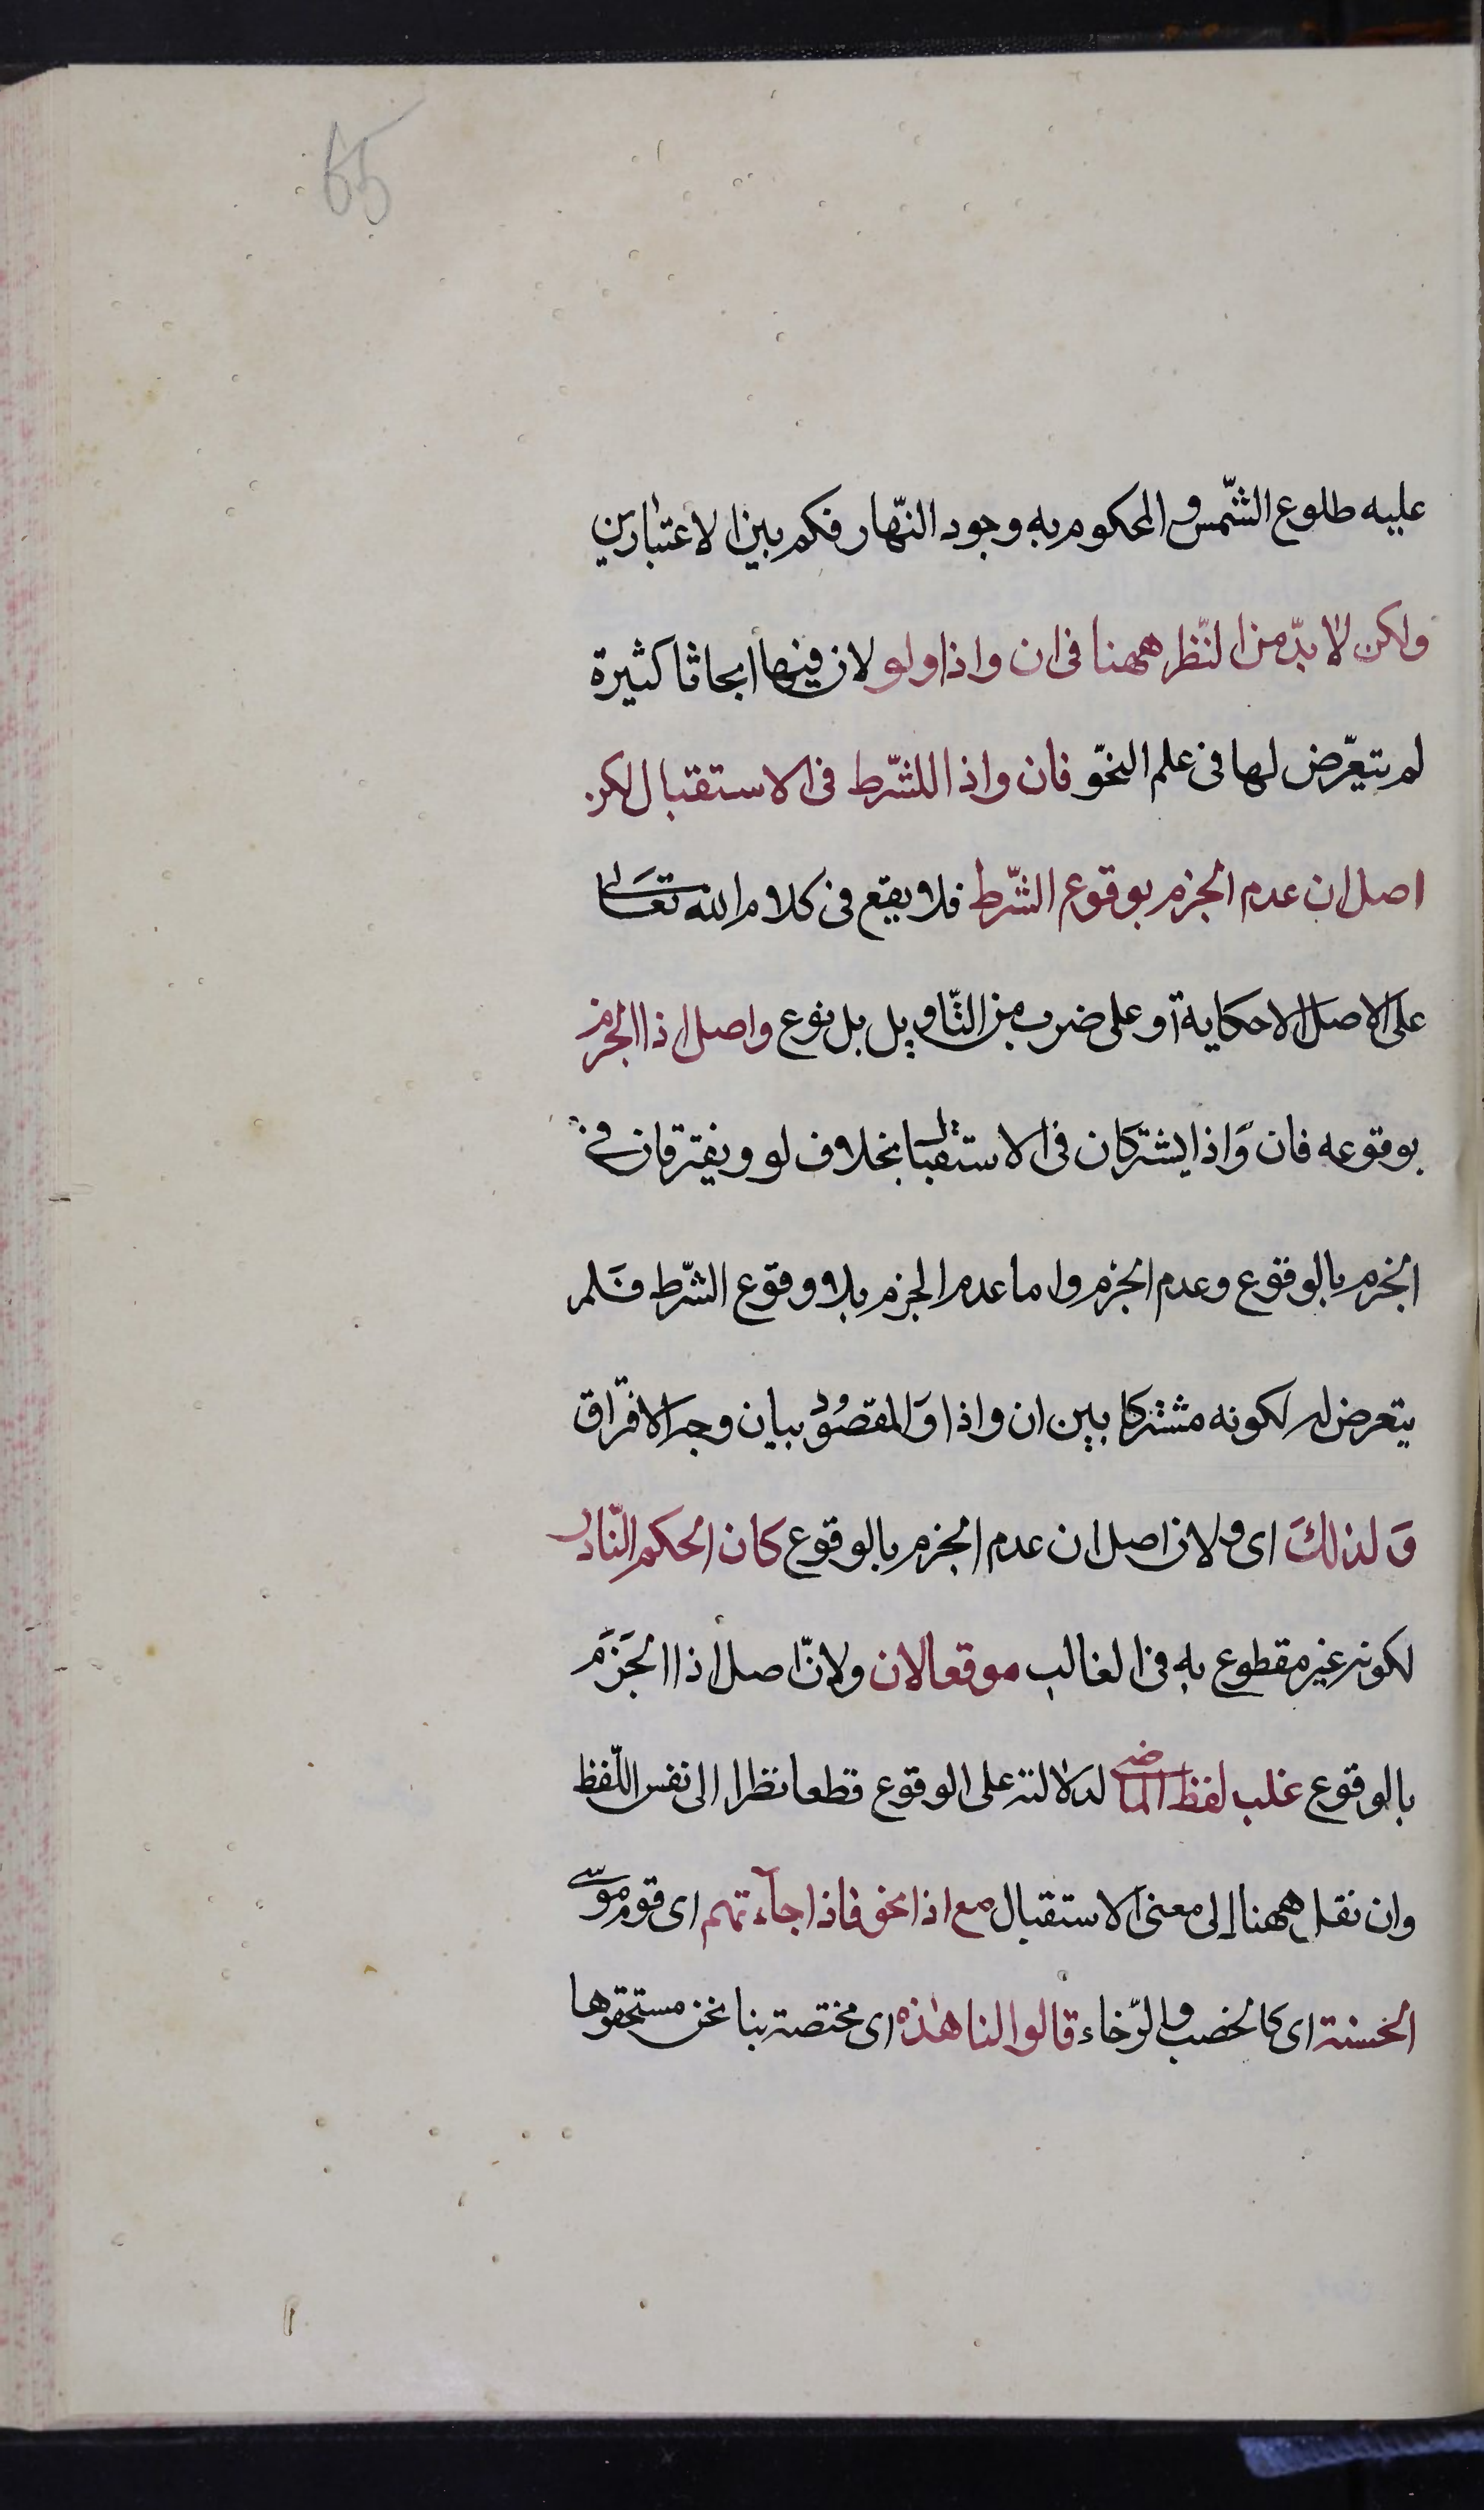 65
عليه طلوع الشّمس والمحكوم به وجود النّهار فكم بين الاعتبارين
ولكن لا بدّ من النّظر ههنا فى ان واذا ولو لان فيها ابحاثا كثيرة
لم يتعرّض لها فى علم النحّو فان واذا للشّرط فى الاستقبال لكن
اصل ان عدم الجزم بوقوع الشّرط فلا يقع فى كلام الله تعالى
على الاصل الا حكاية أو على ضرب من التّاويل بل نوع واصل اذا الجزم
بوقوعه فان وَاذا يشتركان فى الاستقبال بخلاف لو ويفترقان فى
الجزم بالوقوع وعدم الجزم واما عدم الجزم بلا وقوع الشّرط فَلم
يتعرض له لكونه مشتركا بين ان واذا وَالمقصُود بيان وجه الافتراق
وَلذلكَ اى ولان اصل ان عدم الجزم بالوقوع كان الحكم النّادر
لكونه غير مقطوع به فى الغالب موقعا لان ولانّ اصل اذا الجَزَم
بالوقوع غلب لفظ الماضى لدلالته على الوقوع قطعا نظرا الى نفس اللّفظ
وان نقل ههنا إلى معنى الاستقبال مع اذا نحو فاذا جآءتهم اى قوم موسى
الحسنة اى كالخصب والرّخاء قالوا لنا هٰذه اى مختصة بنا نحن مستحقوها